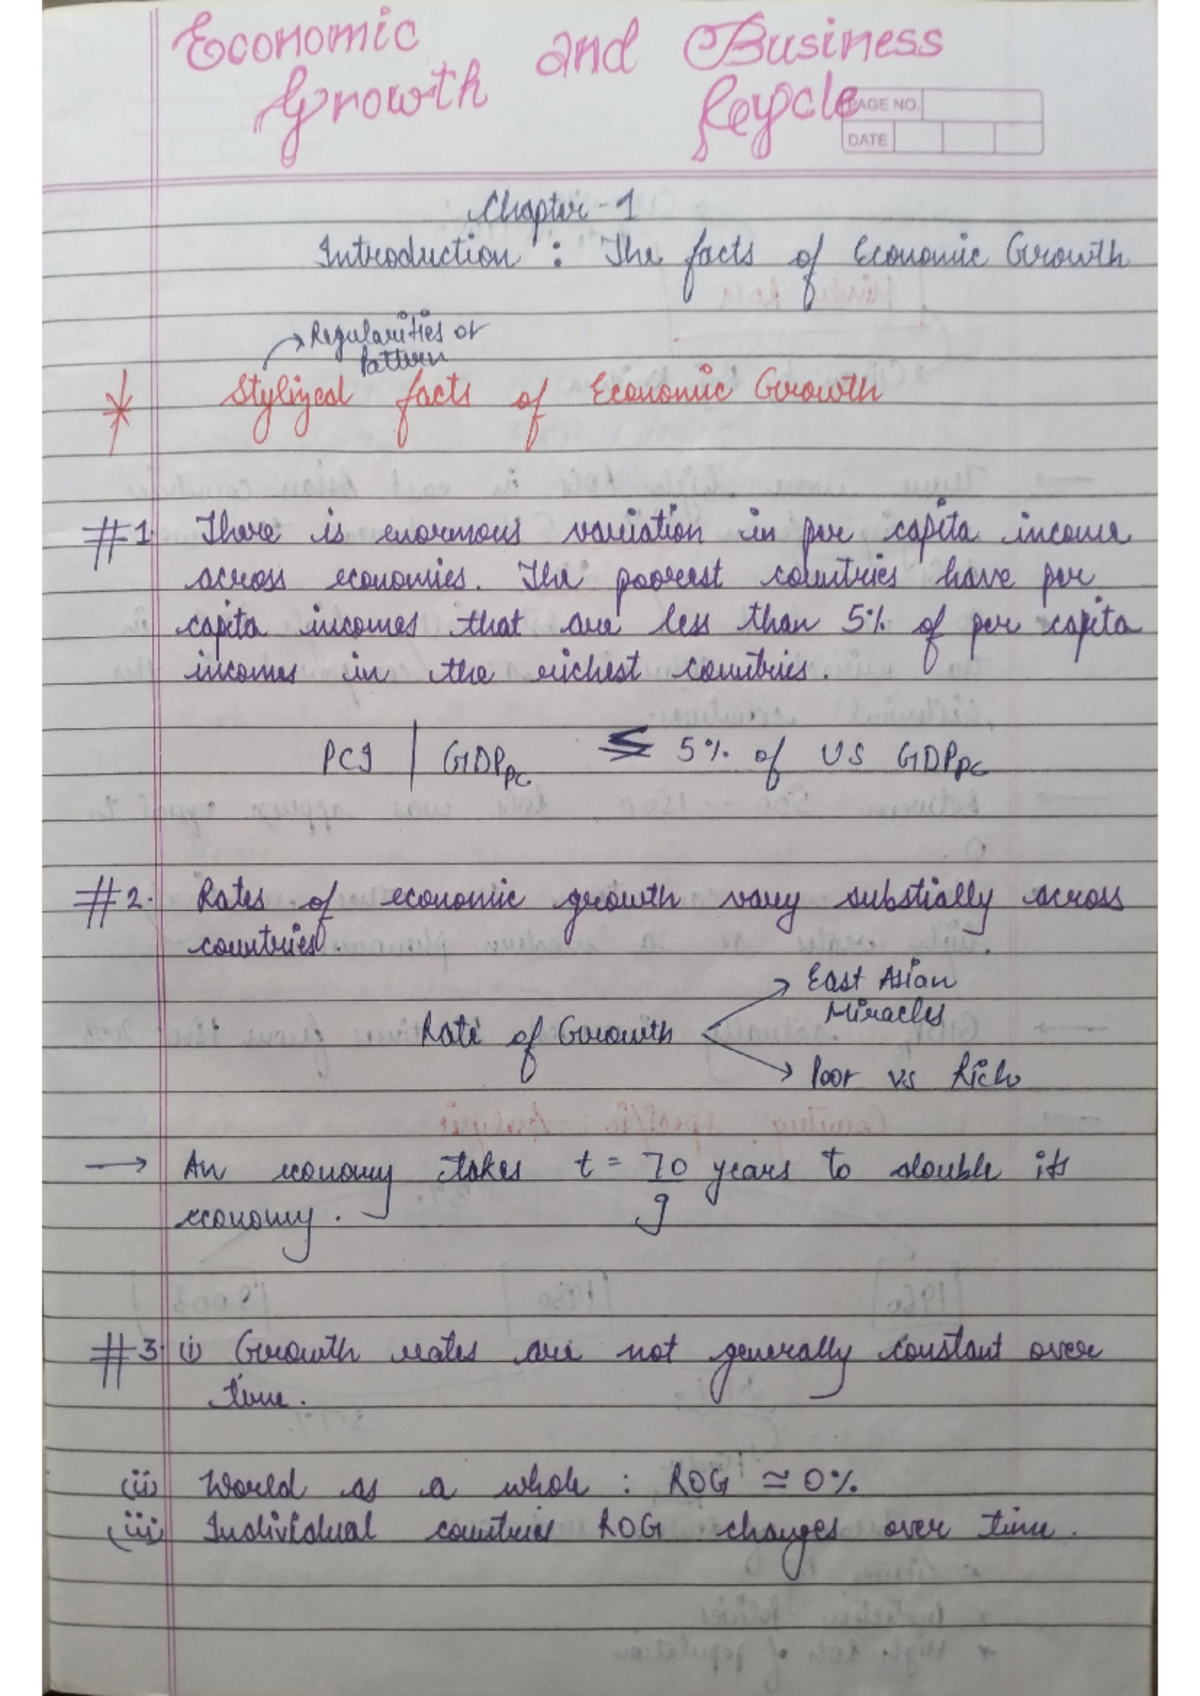 Economic and Business
Growth Cycle
PAGE NO.
DATE
Chapter-1
Introduction : The facts of Economic Growth
→ Regularities or
Pattern
* Stylized facts of Economic Growth
#1. There is enormous variation in per capita income
across economies. The poorest countries have per
capita incomes that are less than 5% of per capita
incomes in the richest countries.
PCI | GDPpc ≤ 5% of US GDPpc
#2. Rates of economic growth vary substially across
countries.
East Asian
Miracles
Rate of Growth
Poor vs Rich
→ An economy takes t = 70/g years to double its
economy.
#3. (i) Growth rates are not generally constant over
time.
(ii) World as a whole : ROG ≃ 0%
(iii) Individual countries ROG changes over time.